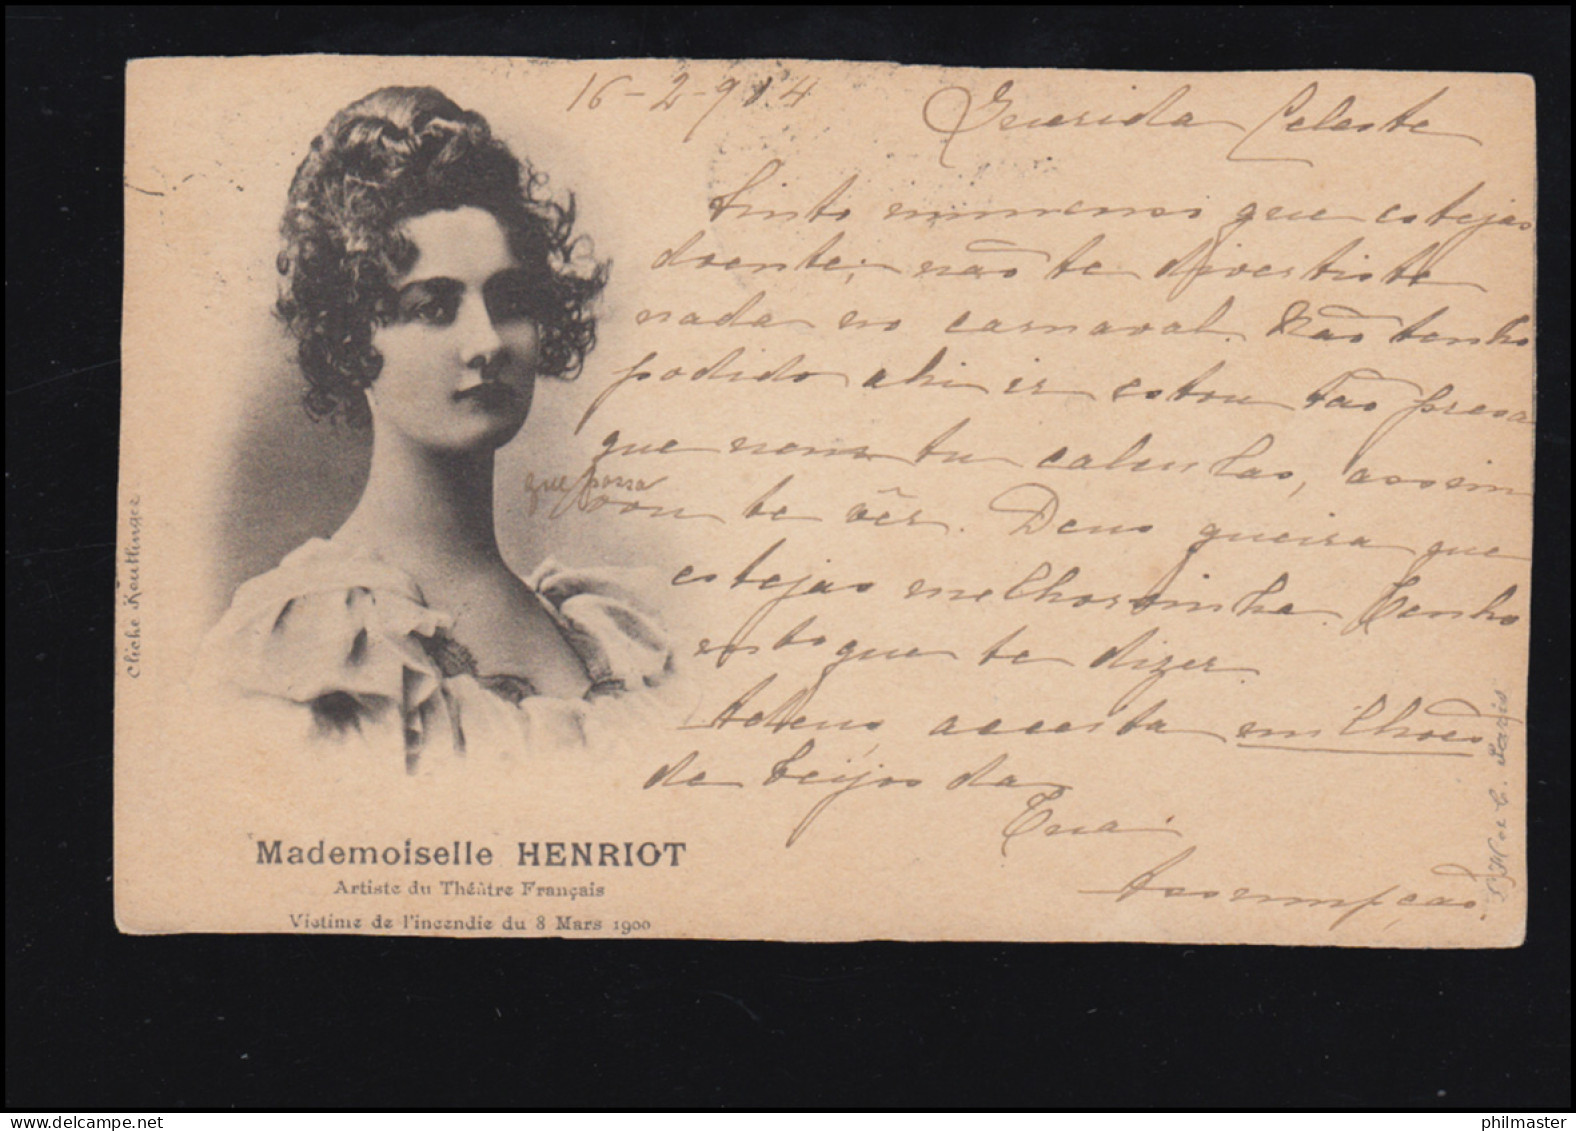 16-2-914
Querida Celeste
Sinto immenso que estejas
doente, não te divertiste
nada no carnaval. Não tenho
podido ahi ir estou tão presa
que nem tu calculas, assim
que possa vou te vêr. Deus queira que
estejas melhorsinha. Tenho
mto que te dizer.
Adeus acceita milhões
de beijos da
Tua
Assumpção.
Cliché Reutlinger
Mademoiselle HENRIOT
Artiste du Théâtre Français
Victime de l'incendie du 8 Mars 1900
et C. Paris
philmaster